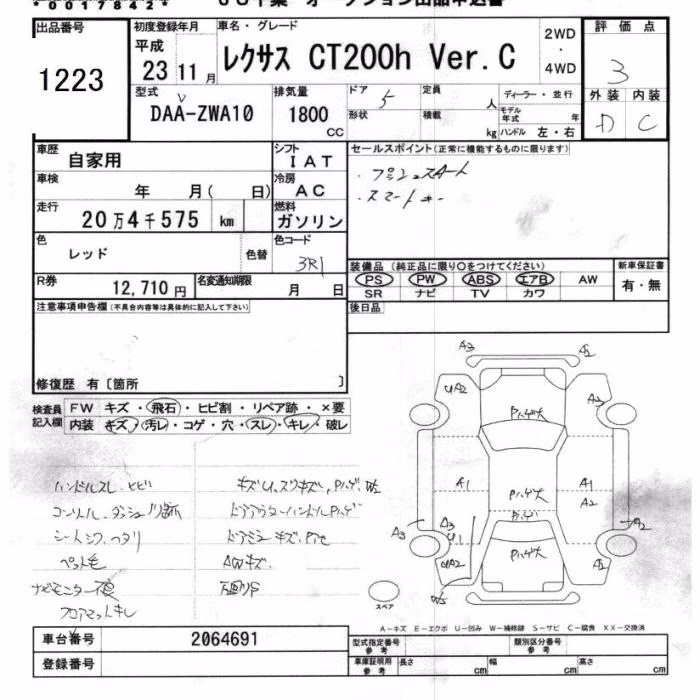 *00178421*
出品番号
1223
初度登録年月
平成
23 11 月
車名・グレード
レクサス CT200h Ver.C
2WD
・
4WD
評価点
3
外装 内装
D C
型式
DAA-ZWA10
排気量
1800
CC
ドア 5
定員 人
形状
積載 kg
ディーラー・並行
モデル年式 年
ハンドル 左・右
車歴
自家用
シフト
IAT
車検
年 月( 日)
冷房
AC
走行
20万4千575 km
燃料
ガソリン
色
レッド
色替
色コード
3R1
R券
12,710円
名変通知期限
月 日
セールスポイント(正常に機能するものに限ります)
・プッシュスタート
・スマートキー
装備品(純正品に限り○をつけてください)
PS PW ABS エアB AW
SR ナビ TV カワ
新車保証書
有・無
後日品
注意事項申告欄(不具合内容等は具体的に記入して下さい)
修復歴 有〔箇所 〕
検査員
記入欄
FW キズ・飛石・ヒビ割・リペア跡・×要
内装 キズ・汚レ・コゲ・穴・スレ・キレ・破レ
ハンドルスレ、ヒビ
ペット毛
ナビモニター不良
フロアマットキレ
キズU、スリキズ、Pハゲ、W2
ドアアウターハンドルPハゲ
AWキズ
A3
A2
UA2
A2
Pハゲ大
A1
Pハゲ大
A1
A2
A3
A3
U1
Pハゲ
A2
UA2
Pハゲ大
A2
スペア
A-キズ E-エクボ U-凹み W-補修跡 S-サビ C-腐食 XX-交換済
車台番号
2064691
登録番号
型式指定番号
参考
類別区分番号
参考
車庫証明用
参考
長さ cm
幅 cm
高さ cm